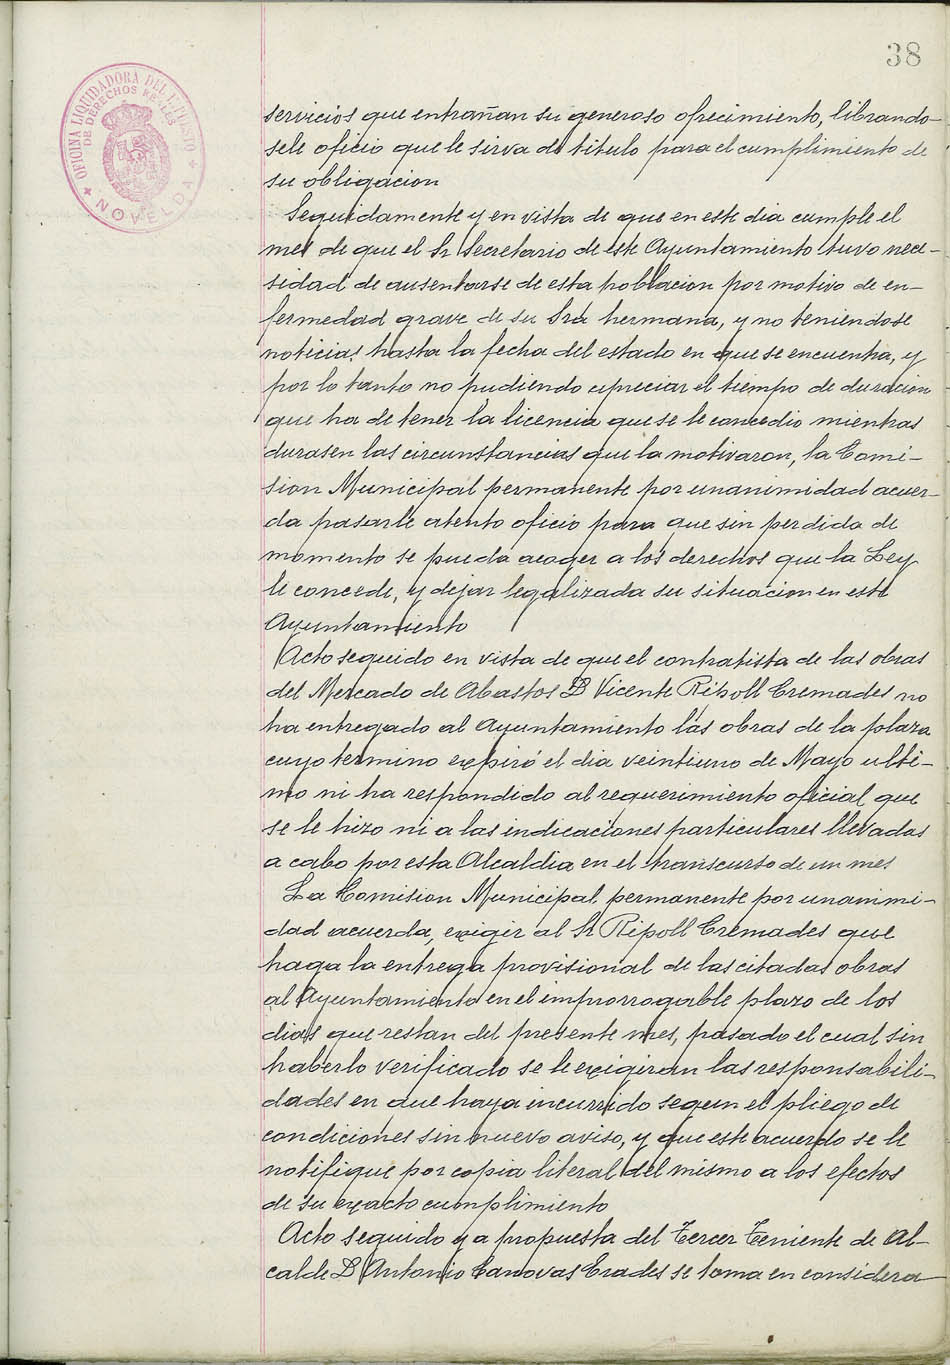 38
OFICINA LIQUIDADORA DEL IMPUESTO
DE DERECHOS REALES
NOVELDA
servicios que entrañan su generoso ofrecimiento, librando-
sele oficio que le sirva de titulo para el cumplimiento de
su obligacion
Seguidamente y en vista de que en este dia cumple el
mes de que el Sr Secretario de este Ayuntamiento tuvo nece-
sidad de ausentarse de esta poblacion por motivo de en-
fermedad grave de su Sra hermana, y no teniendose
noticias hasta la fecha del estado en que se encuentra, y
por lo tanto no pudiendo apreciar el tiempo de duracion
que ha de tener la licencia que se le concedio mientras
durasen las circunstancias que la motivaron, la Comi-
sion Municipal permanente por unanimidad acuer-
da pasarle atento oficio para que sin perdida de
momento se pueda acoger a los derechos que la Ley
le concede, y dejar legalizada su situacion en este
Ayuntamiento
Acto seguido en vista de que el contratista de las obras
del Mercado de Abastos D Vicente Ripoll Cremades no
ha entregado al Ayuntamiento las obras de la plaza
cuyo termino expiró el dia veintiuno de Mayo ulti-
mo ni ha respondido al requerimiento oficial que
se le hizo ni a las indicaciones particulares llevadas
a cabo por esta Alcaldia en el transcurso de un mes
La Comision Municipal permanente por unanimi-
dad acuerda, exigir al Sr Ripoll Cremades que
haga la entrega provisional de las citadas obras
al Ayuntamiento en el improrrogable plazo de los
dias que restan del presente mes, pasado el cual sin
haberlo verificado se le exigiran las responsabili-
dades en que haya incurrido segun el pliego de
condiciones sin nuevo aviso, y que este acuerdo se le
notifique por copia literal del mismo a los efectos
de su exacto cumplimiento
Acto seguido y a propuesta del Tercer Teniente de Al-
calde D Antonio Canovas Crades se toma en considera-